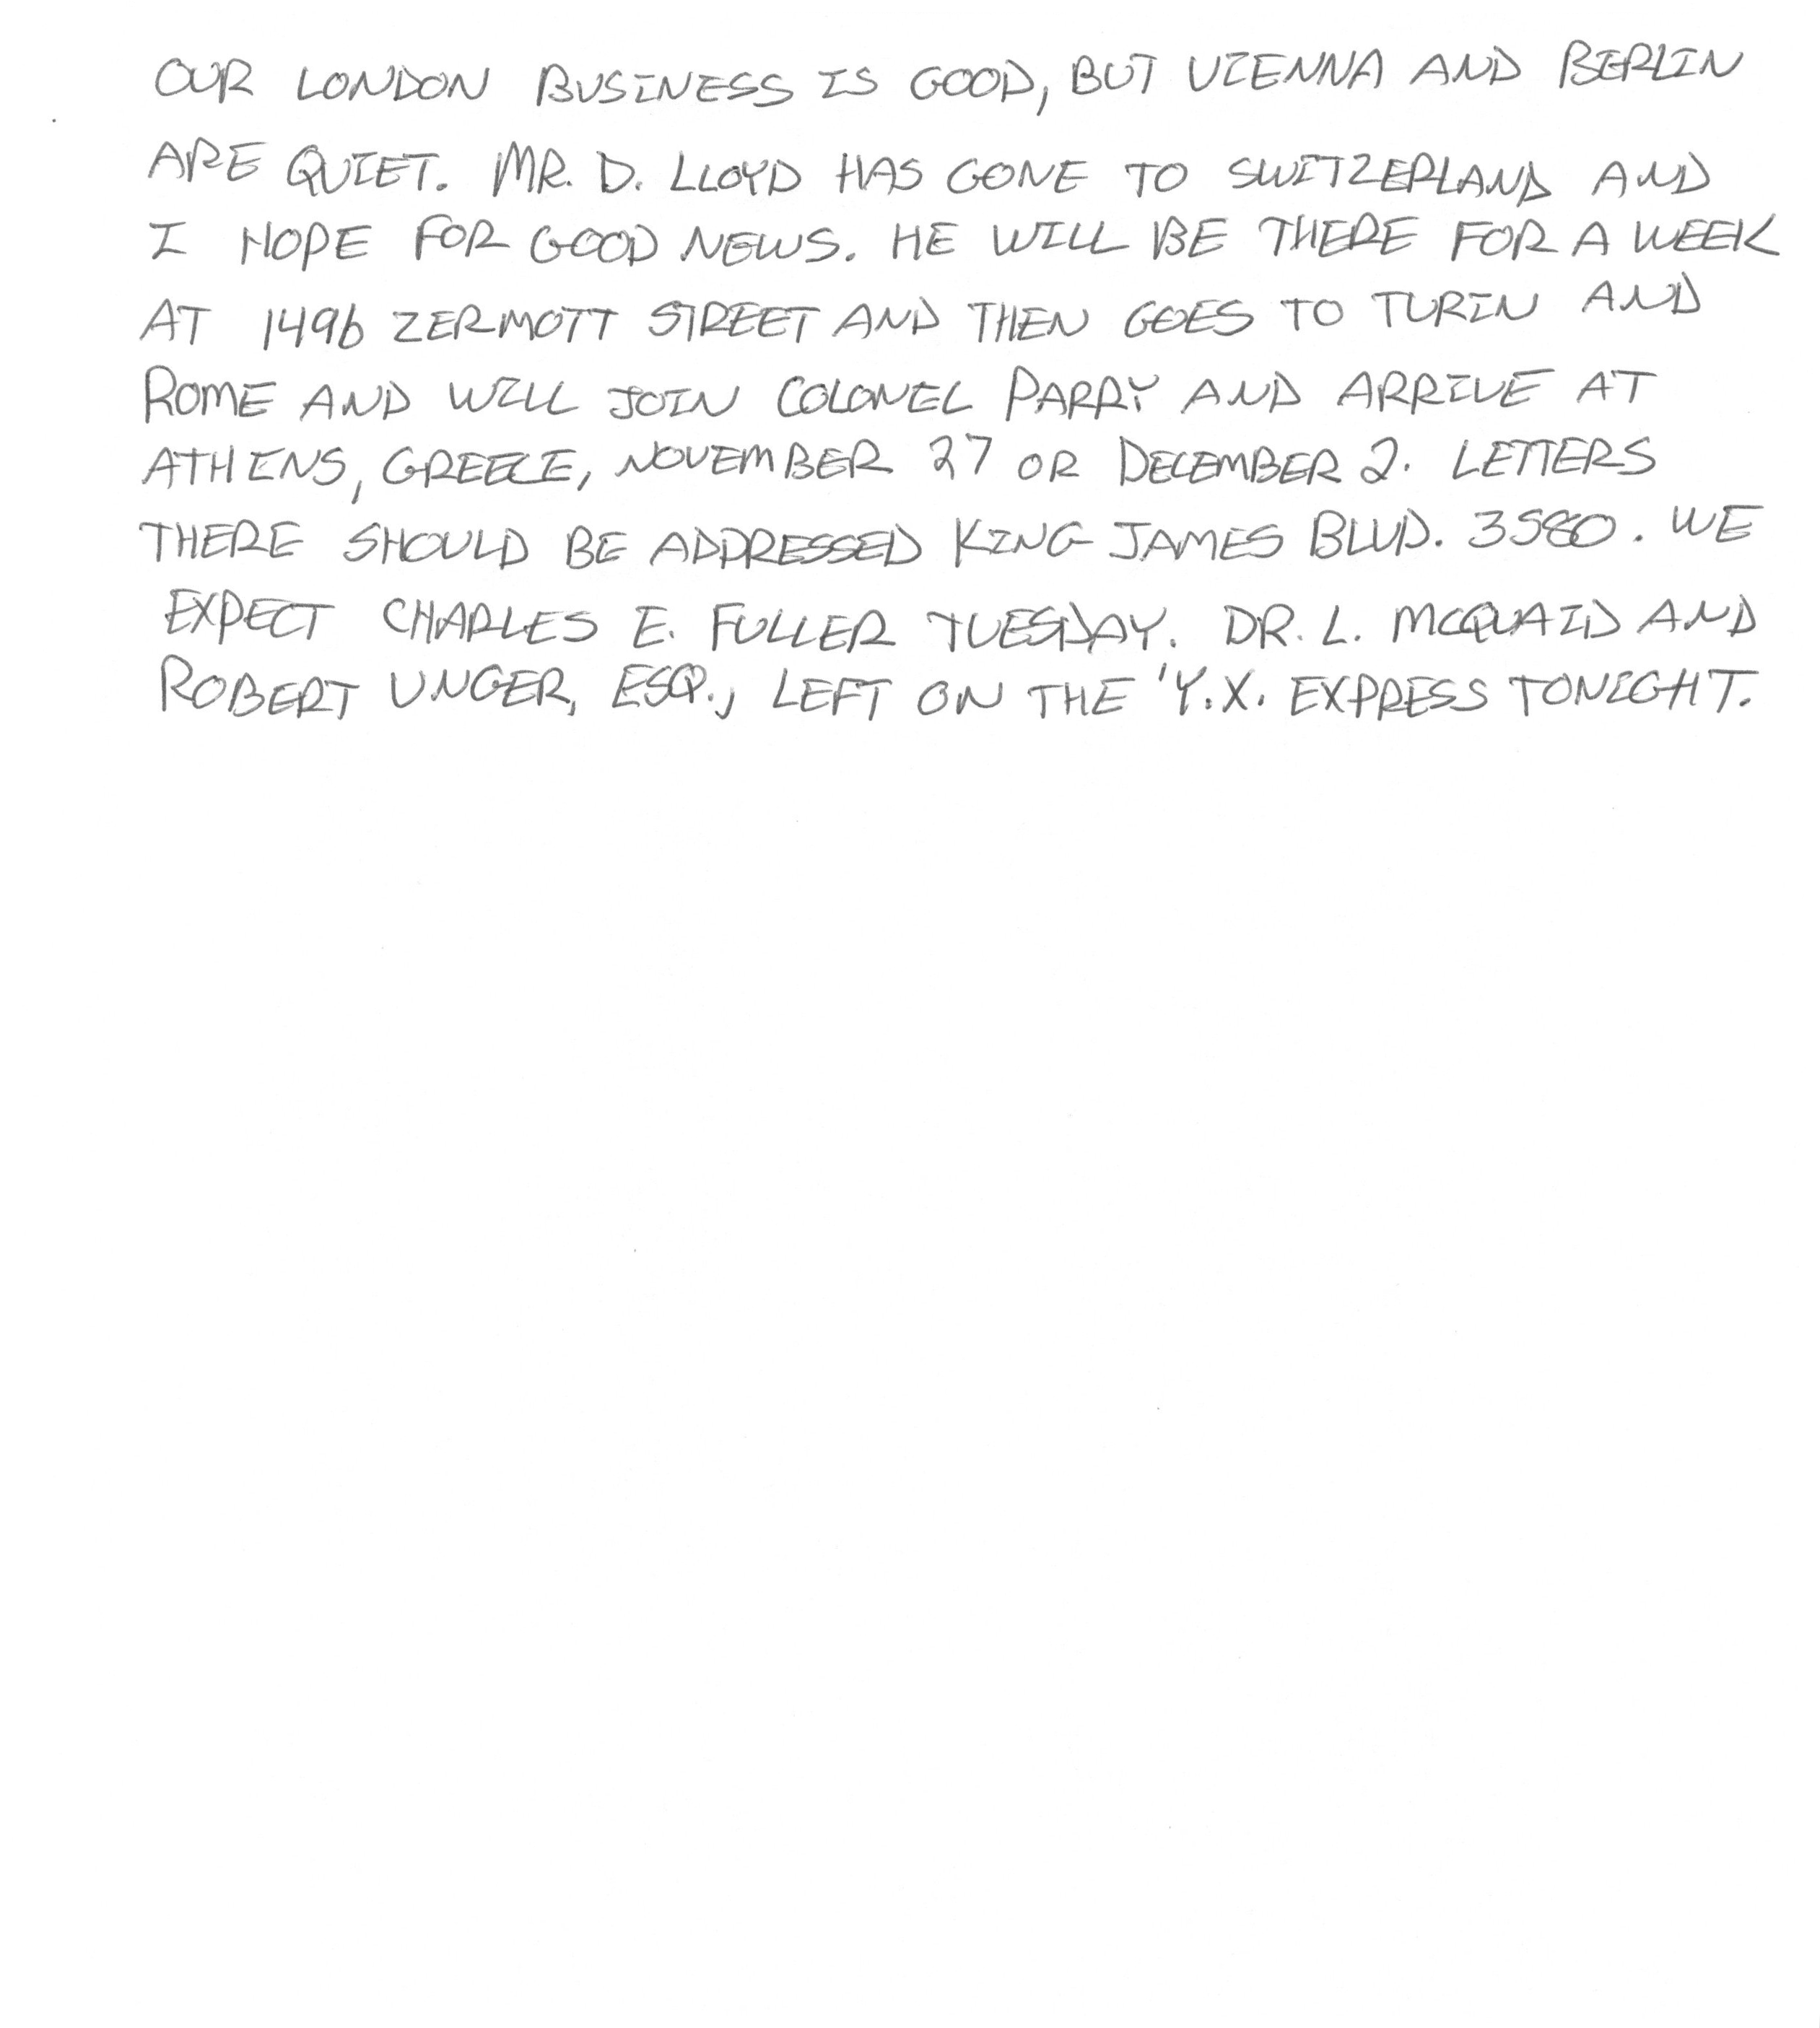 OUR LONDON BUSINESS IS GOOD, BUT VIENNA AND BERLIN
ARE QUIET. MR. D. LLOYD HAS GONE TO SWITZERLAND AND
I HOPE FOR GOOD NEWS. HE WILL BE THERE FOR A WEEK
AT 1496 ZERMOTT STREET AND THEN GOES TO TURIN AND
ROME AND WILL JOIN COLONEL PARRY AND ARRIVE AT
ATHENS, GREECE, NOVEMBER 27 OR DECEMBER 2. LETTERS
THERE SHOULD BE ADDRESSED KING JAMES BLVD. 3580. WE
EXPECT CHARLES E. FULLER TUESDAY. DR. L. MCQUAID AND
ROBERT UNGER, ESQ., LEFT ON THE 'Y.X. EXPRESS TONIGHT.